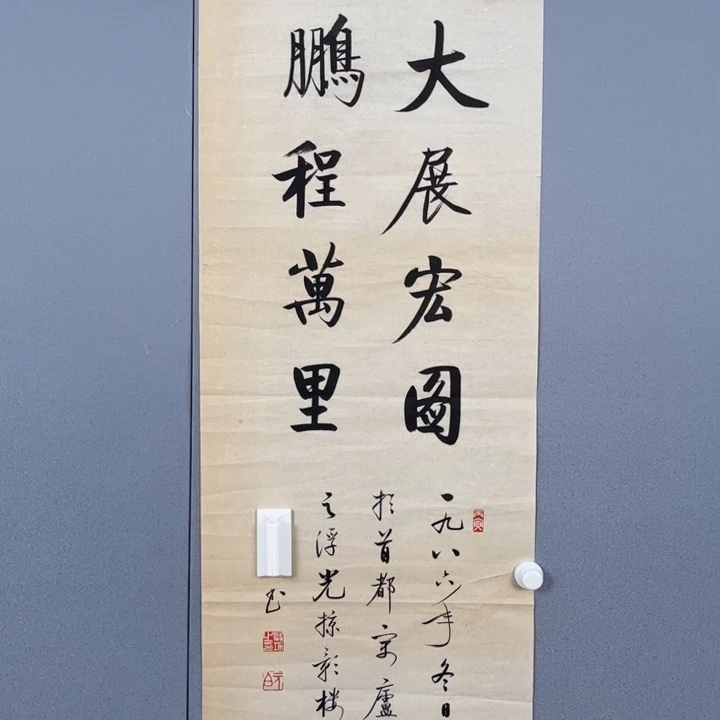 大展宏圖
鵬程萬里
一九八六年冬日
於首都寓廬
之浮光掠影樓